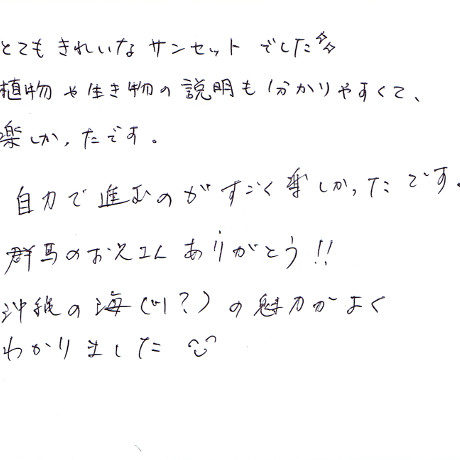 とてもきれいなサンセットでした✨
植物や生き物の説明も分かりやすくて、
楽しかったです。
自力で進むのがすごく楽しかったです。
群馬のお兄さんありがとう!!
沖縄の海(川?)の魅力がよく
わかりました☺